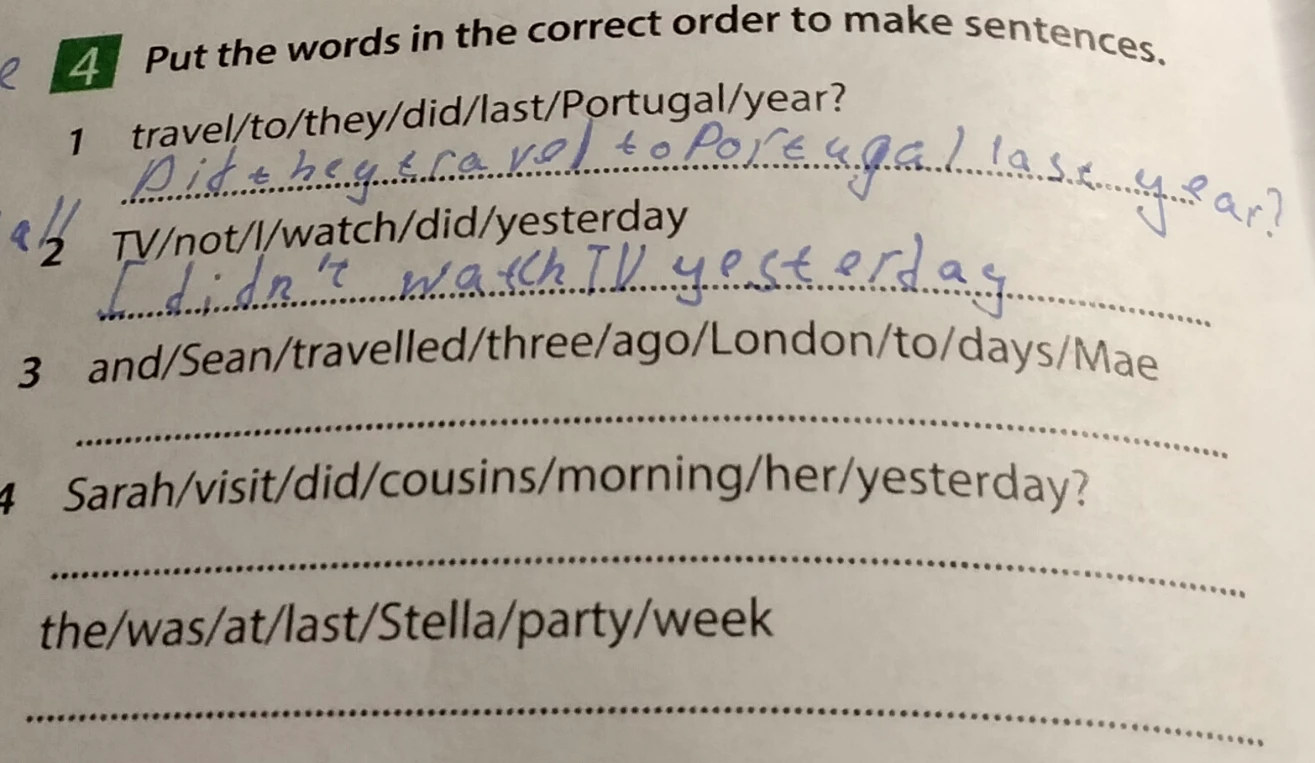 e
4 Put the words in the correct order to make sentences.
1 travel/to/they/did/last/Portugal/year?
Did they travel to Portugal last year?
2 TV/not/I/watch/did/yesterday
I didn't watch TV yesterday
3 and/Sean/travelled/three/ago/London/to/days/Mae
4 Sarah/visit/did/cousins/morning/her/yesterday?
the/was/at/last/Stella/party/week